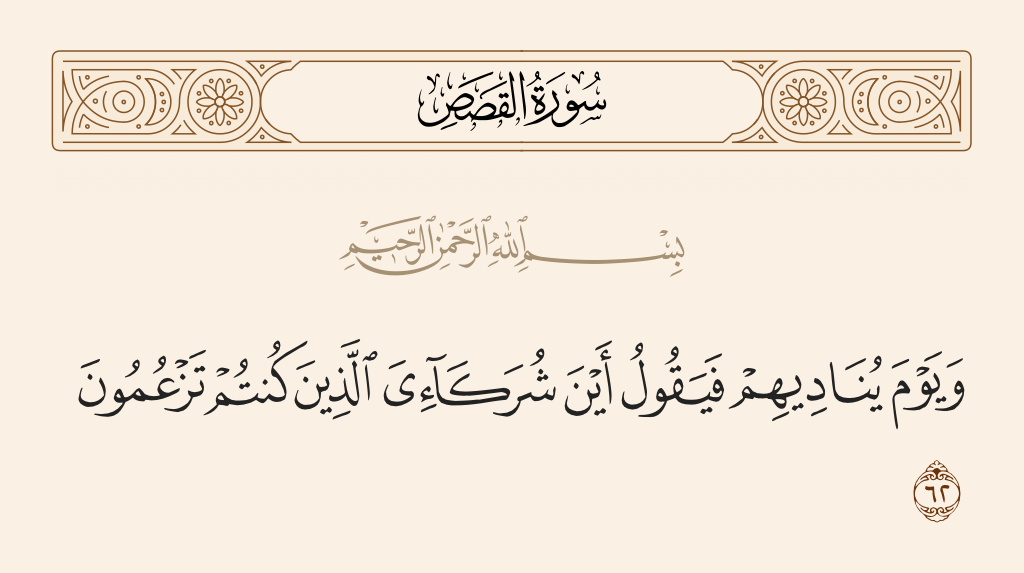 سُورَةُ القَصَصِ
بِسْمِ ٱللَّهِ ٱلرَّحْمَٰنِ ٱلرَّحِيمِ
وَيَوْمَ يُنَادِيهِمْ فَيَقُولُ أَيْنَ شُرَكَآءِىَ ٱلَّذِينَ كُنتُمْ تَزْعُمُونَ
٦٢